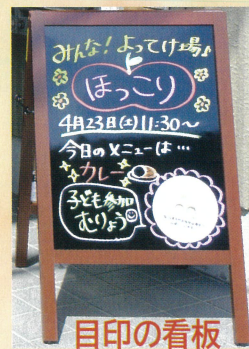 みんな！よってけ場♪
ほっこり
4月23日(土)11:30～
今日のメニューは…
カレー
子ども参加
むりょう
目印の看板